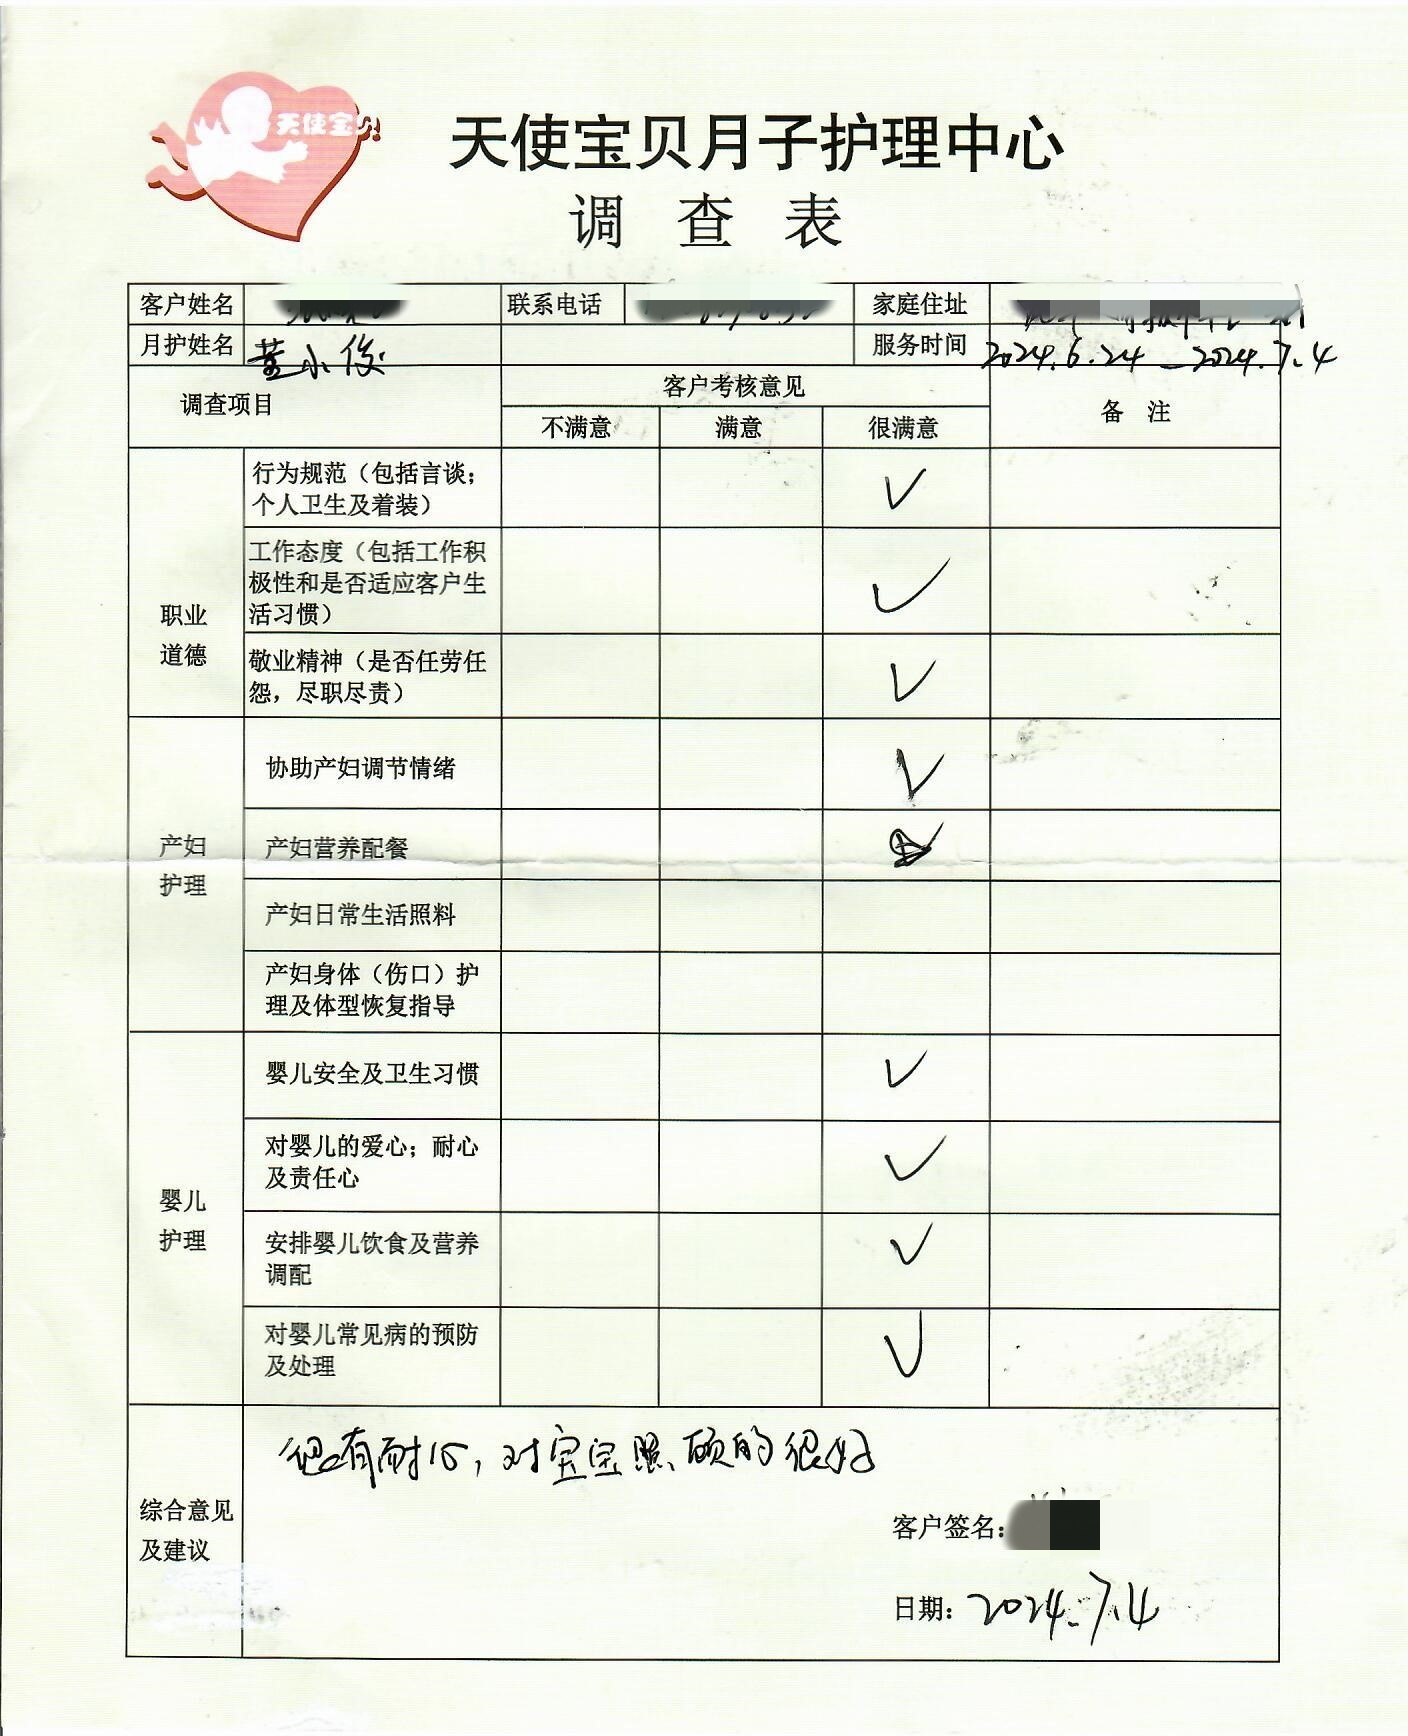 天使宝贝
天使宝贝月子护理中心
调 查 表
客户姓名 联系电话 家庭住址
月护姓名 董小俊 服务时间 2024.6.24 — 2024.7.4
调查项目 客户考核意见 备 注
不满意 满意 很满意
职业
道德
行为规范（包括言谈；
个人卫生及着装） ✓
工作态度（包括工作积
极性和是否适应客户生
活习惯） ✓
敬业精神（是否任劳任
怨，尽职尽责） ✓
产妇
护理
协助产妇调节情绪 ✓
产妇营养配餐 ✓
产妇日常生活照料
产妇身体（伤口）护
理及体型恢复指导
婴儿
护理
婴儿安全及卫生习惯 ✓
对婴儿的爱心；耐心
及责任心 ✓
安排婴儿饮食及营养
调配 ✓
对婴儿常见病的预防
及处理 ✓
综合意见
及建议
有耐心，对宝宝照顾的很好
客户签名：
日期：2024.7.4